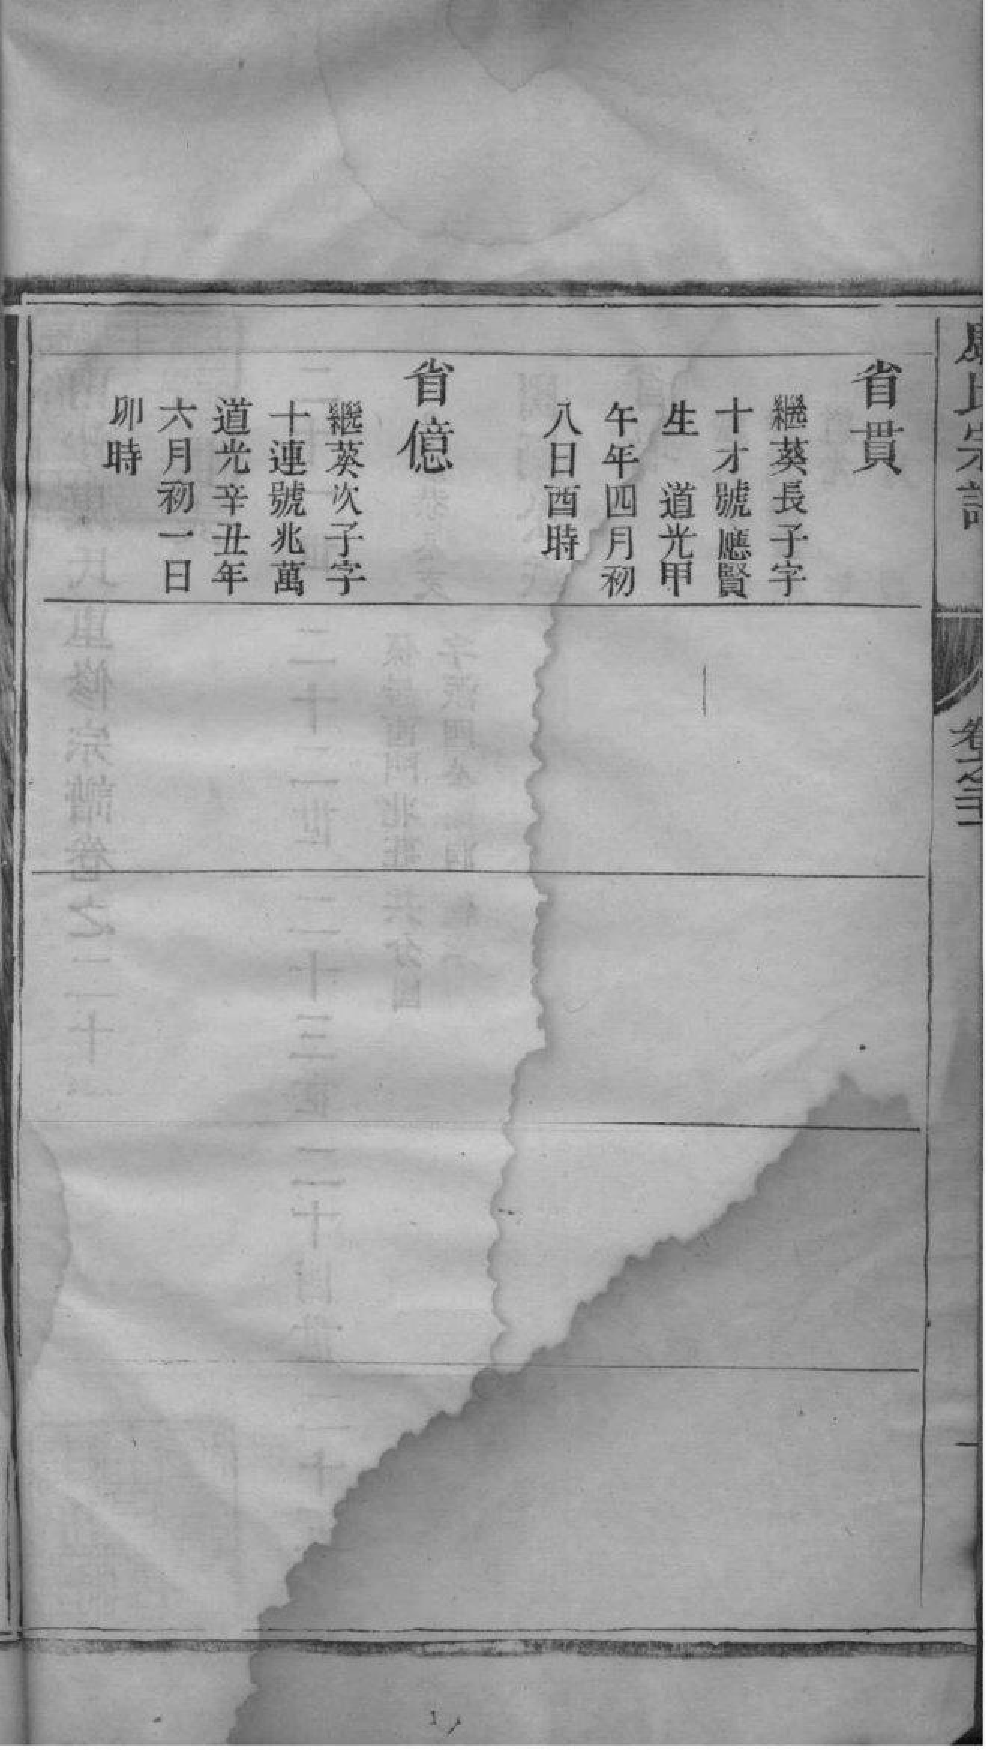 氏宗譜
卷之二十
省貫
繼葵長子字
十才號應賢
生　道光甲
午年四月初
八日酉時
省億
繼葵次子字
十連號兆萬
道光辛丑年
六月初一日
卯時